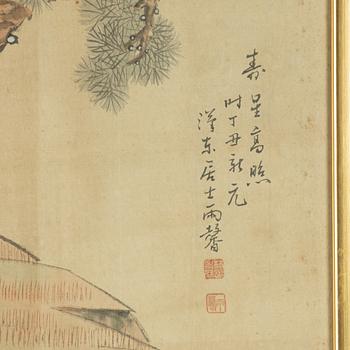 寿星高照
时丁丑新元
汉东居士雨馨